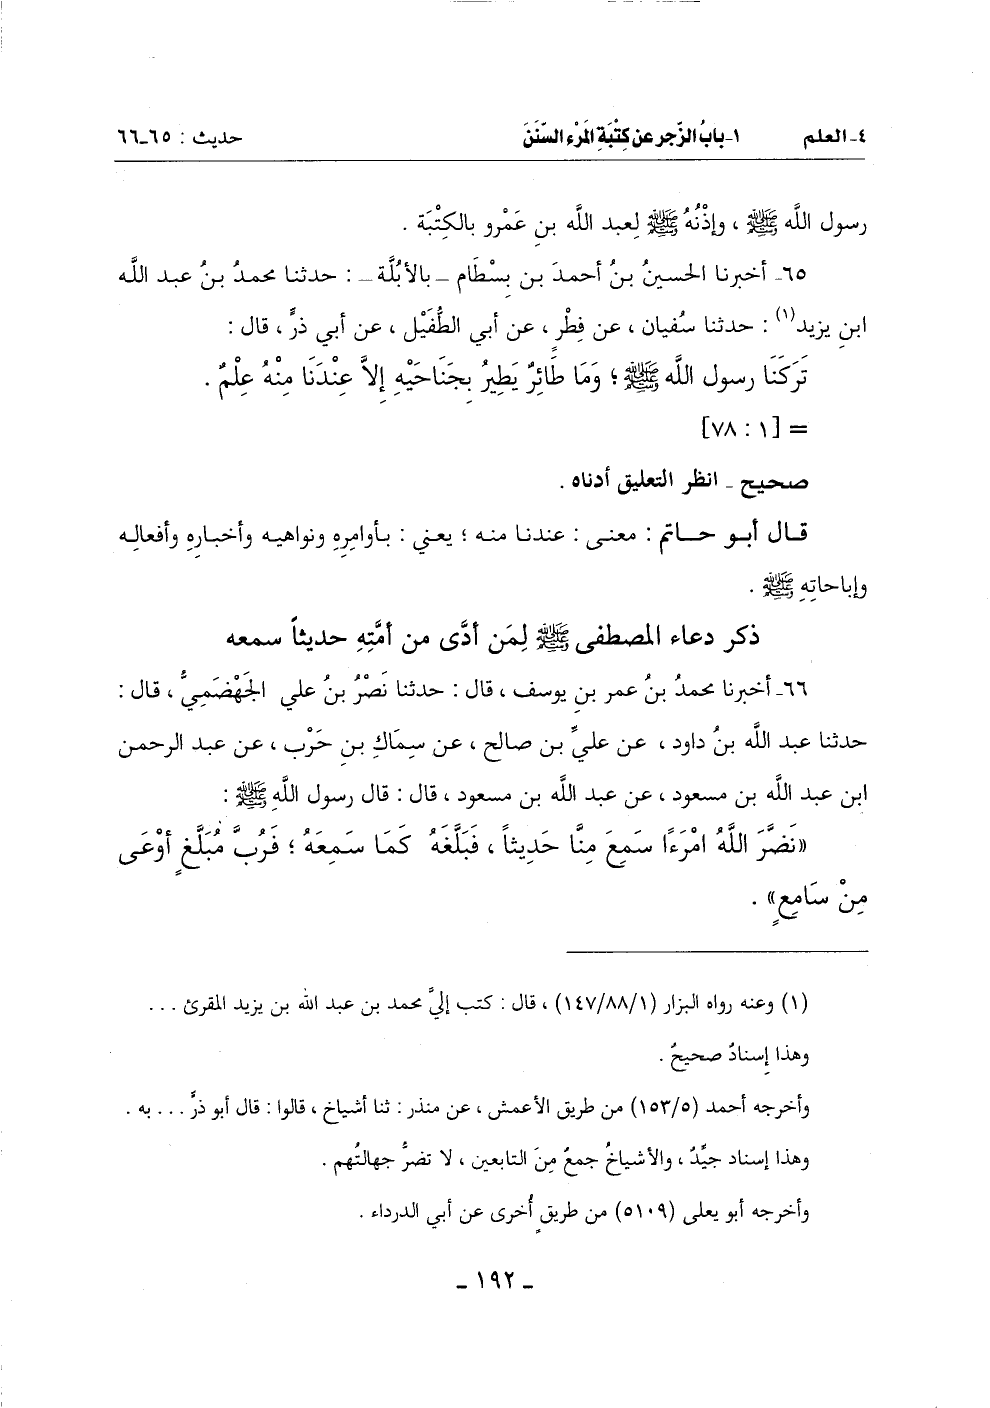 ٤ـ العلم ١ـ بابُ الزّجر عن كِتْبَةِ المَرْء السّنَنَ حديث : ٦٥ـ٦٦
رسول اللَّه ﷺ ، وإذْنُهُ ﷺ لِعبد اللَّه بنِ عَمْرو بالكِتْبَة .
٦٥ـ أخبرنا الحسينُ بنُ أحمدَ بن بِسْطَام ـ بالأبُلَّة ـ : حدثنا محمدُ بنُ عبد اللَّه
ابنِ يزيد(١) : حدثنا سُفيان ، عن فِطْرٍ ، عن أبي الطُّفَيْل ، عن أبي ذرٍّ ، قال :
تَرَكَنَا رسول اللَّه ﷺ ؛ وَمَا طَائِرٌ يَطِيرُ بِجَنَاحَيْهِ إلاَّ عِنْدَنَا مِنْهُ عِلْمٌ .
= [١ : ٧٨]
صحيح ـ انظر التعليق أدناه .
قال أبو حاتم : معنى : عندنا منه ؛ يعني : بأوامِرِهِ ونواهيه وأخبارِهِ وأفعالِه
وإباحاتِهِ ﷺ .
ذكر دعاء المصطفى ﷺ لِمَن أدَّى من أمَّتِهِ حديثاً سمعه
٦٦ـ أخبرنا محمدُ بنُ عمر بنِ يوسف ، قال : حدثنا نَصْرُ بنُ علي الجَهْضَمِيُّ ، قال :
حدثنا عبد اللَّه بنُ داود ، عن عليِّ بن صالح ، عن سِمَاكِ بنِ حَرْب ، عن عبد الرحمن
ابن عبد اللَّه بن مسعود ، عن عبد اللَّه بن مسعود ، قال : قال رسول اللَّهِ ﷺ :
«نَضَّرَ اللَّهُ امْرَءًا سَمِعَ مِنَّا حَدِيثاً ، فَبَلَّغَهُ كَمَا سَمِعَهُ ؛ فَرُبَّ مُبَلَّغٍ أوْعَى
مِنْ سَامِعٍ» .
(١) وعنه رواه البزار (١٤٧/٨٨/١) ، قال : كتب إليَّ محمد بن عبد الله بن يزيد المقرئ ...
وهذا إسنادٌ صحيحٌ .
وأخرجه أحمد (١٥٣/٥) من طريق الأعمش ، عن منذر : ثنا أشياخ ، قالوا : قال أبو ذرٍّ ... به .
وهذا إسناد جيِّدٌ ، والأشياخُ جمعٌ مِنَ التابعين ، لا تضرُّ جهالتُهم .
وأخرجه أبو يعلى (٥١٠٩) من طريقٍ أُخرى عن أبي الدرداء .
ـ ١٩٢ ـ